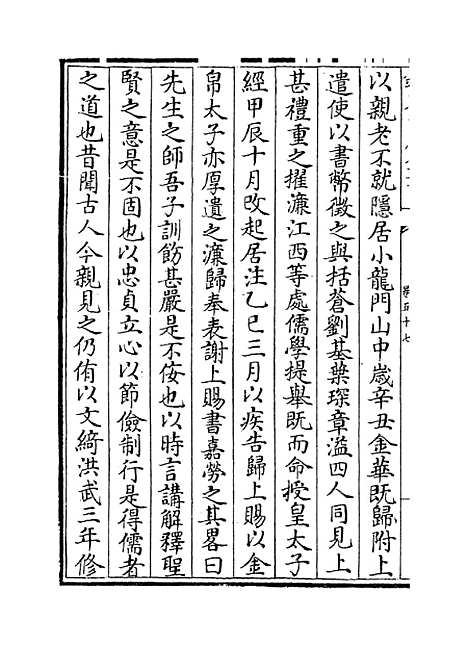 以親老不就隱居小龍門山中嵗辛丑金華既歸附上
遣使以書幣徵之與括蒼劉基葉琛章溢四人同見上
甚禮重之擢濂江西等處儒學提舉既而命授皇太子
經甲辰十月改起居注乙巳三月以疾告歸上賜以金
帛太子亦厚遺之濂歸奉表謝上賜書嘉勞之其畧曰
先生之師吾子訓飭甚嚴是不佞也以時言講解釋聖
賢之意是不固也以忠貞立心以節儉制行是得儒者
之道也昔聞古人今親見之仍侑以文綺洪武三年修